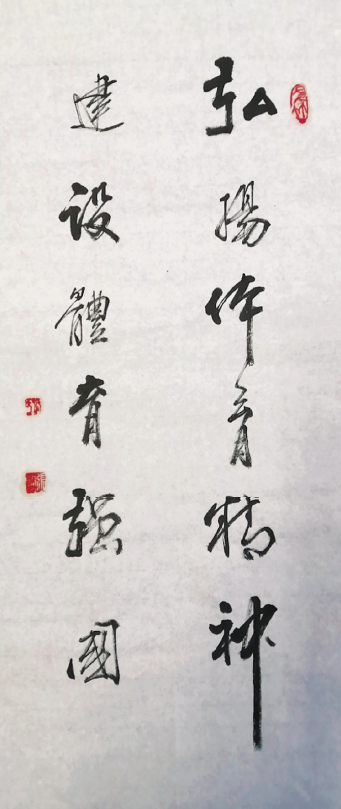 弘揚体育精神
建設體育强國